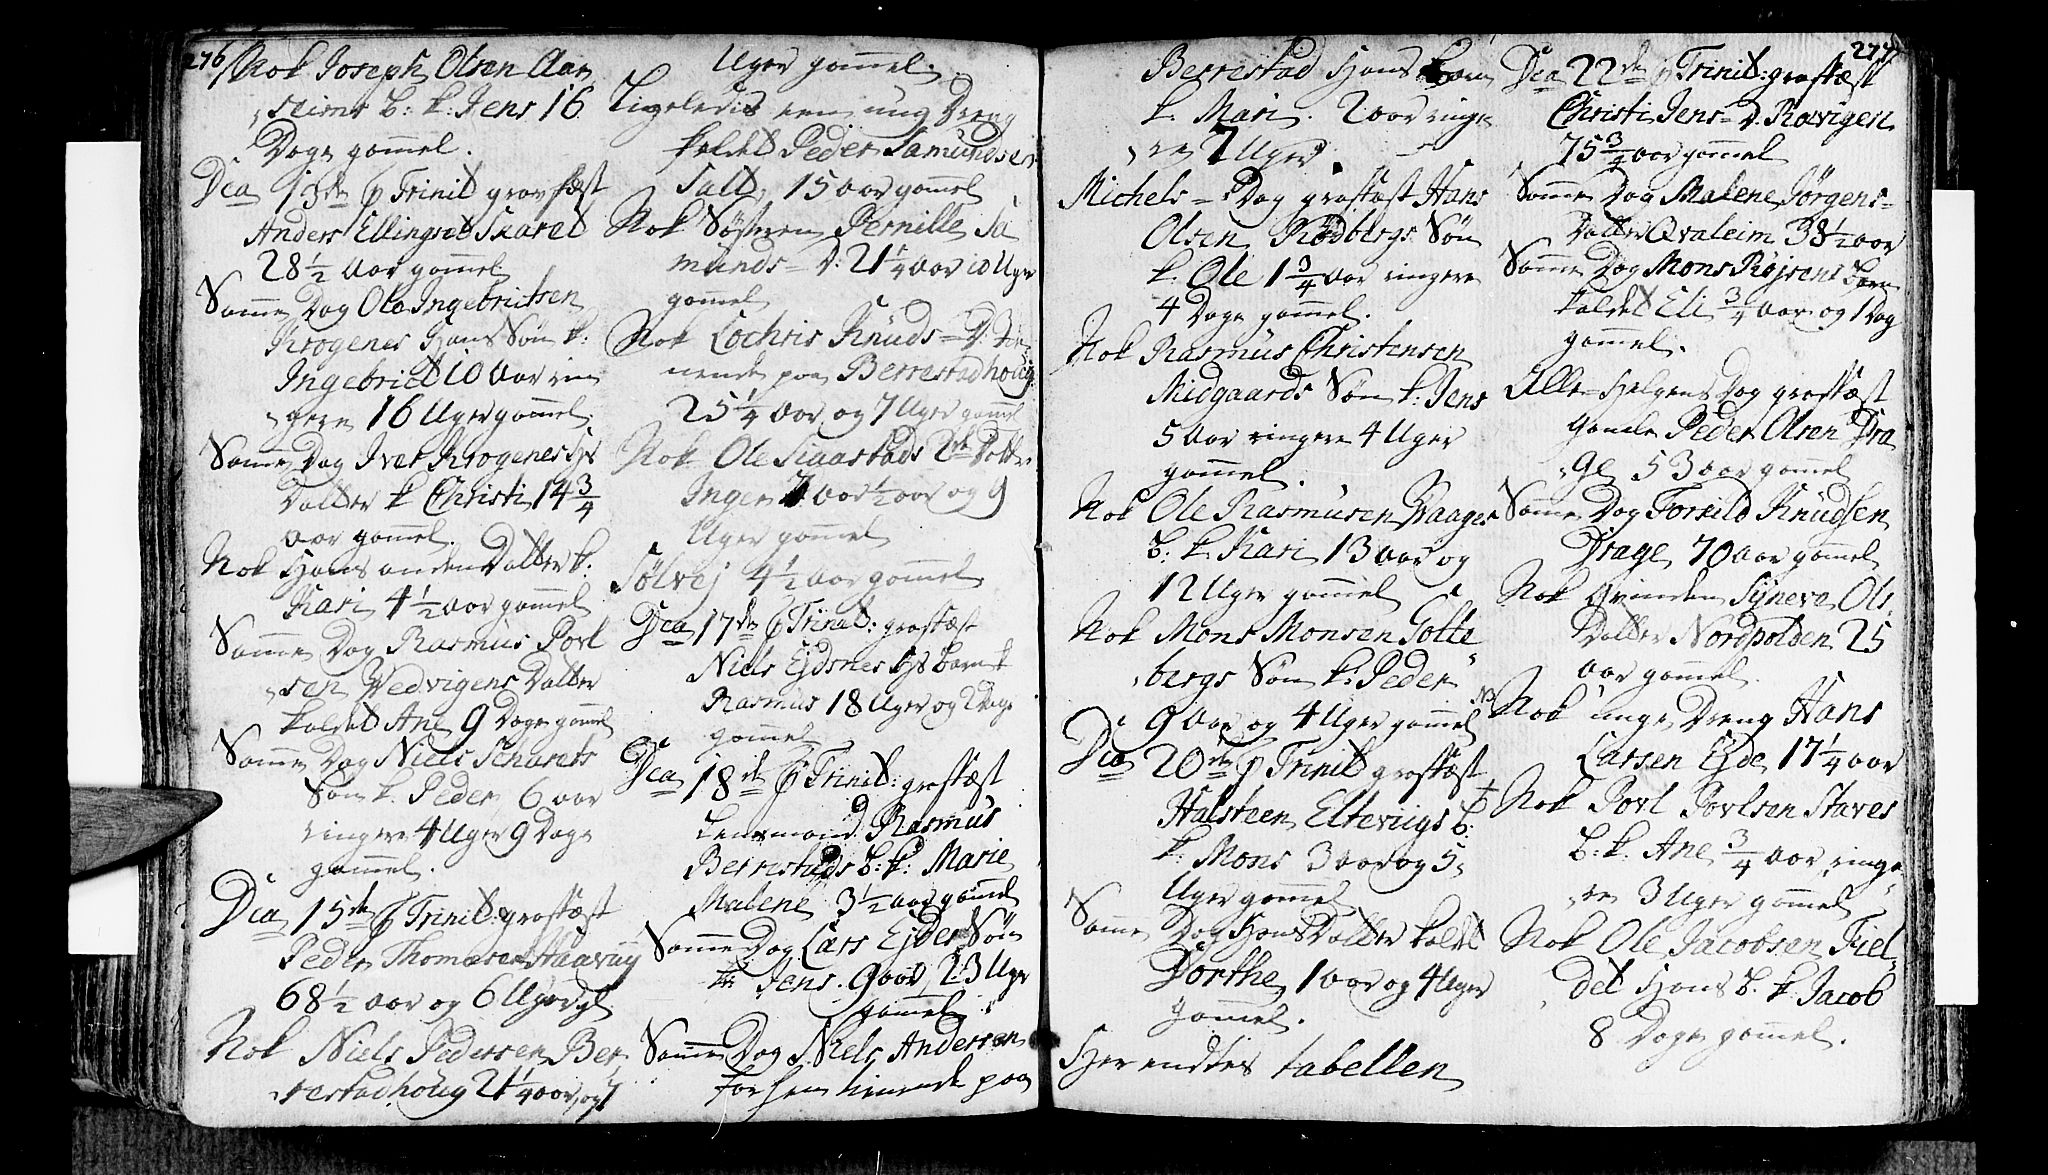 276
Nok Joseph Olsen Aar
seims B: k: Jens 16
Dage gamel.
Dca 13de p Trinit gravfæst
Anders Ellingset Skaret
28 1/2 Aar gamel
Samme Dag Ole Ingebrictsen
Krogenes Hans Søn k:
Ingebrict 10 Aar rin
gere 16 Uger gamel.
Samme Dag Iver Krogenes Hs
Datter k Christi 14 3/4
aar gamel.
Nok Hans anden Datter k.
Kari 4 1/2 aar gamel
Samme Dag Rasmus Povl
sen Wedvigens Datter
kaldet Ane 9 Dage gamel
Samme Dag Niels Scharets
Søn k. Peder 6 aar
ringere 4 Uger 9 Dage
gamel.
Dca 15de p Trinit: graffæst
Peder Thomesen Haavuig
68 1/2 aar og 6 Uger gl
Nok Niels Pedersen Ber
restadhoug 21 1/4 aar, og 7
Uger gamel.
Ligeledis een ung Dreng
kaldet Peder Samundsen
Salt, 15 aar gamel
Nok Søsteren Pernille Sa
munds= D: 21 1/4 aar 10 Uger
gamel
Nok Lochris Knuds= D. Tie
nende paa Berrestadhoug
25 1/4 aar og 7 Uger gamel
Nok Ole Skaastads 2de Døttre
Inger 7 aar 1/2 aar og 9
Uger gamel
Sølvej 4 1/2 aar gamel
Dca 17de p Trinit: graffæst
Niels Ejdsnes Hs Barn k
Rasmus 18 Uger og 2 Dage
gamel
Dca 18de p Trinit: graffæst
Lensmand Rasmus
Berrestads B: k: Marie
Malene 3 1/2 aar gamel
Samme Dag Lars Ejdes Søn
k: Jens. 9 aar, 23 Uger
gamel.
Samme Dag Niels Andersen
Forhen tienende paa
277
Berrestad Hans Barn
k. Mari. 2 aar ringe
re 7 Uger
Michels= Dag grafføst Hans
Olsen Rødbergs Søn
k. Ole 1 3/4 aar ringere
4 Dage gamel.
Nok Rasmus Christensen
Midgaards Søn k: Jens
5 Aar ringere 4 Uger
gamel.
Nok Ole Rasmusen Waages
B. k Kari 13 aar og
12 Uger gamel
Nok Mons Monsen Gotte
bergs Søn k: Peder
9 Aar og 4 Uger gamel
Dca 20de p Trinit graffæst
Halsteen Eltevigs B:
k: Mons 3 aar og 5
Uger gamel
Same Dag Hans Datter kaldet
Dorthe, 1 aar og 4 Uger
gamel.
Her endtes tabellen
Dca 22de p Trinit: grafføst
Christi Jens= D. Røvigen
75 3/4 aar gamel
Samme Dag Malene Jørgens=
Datter Qvaleim 38 1/2 aar
Samme Dag Mons Røjsens Barn
kaldet Eli 3/4 aar og 1 Dag
gamel.
Alle=Helgens Dag graffæst
Gamle Peder Olsen Dra
ge 53 aar gamel
Samme Dag Torkild Knudsen
Drage 70 aar gamel
Nok Qvinden Syneva Ols
Datter Nordpolden 25
aar gamel.
NB
Nok unge Dreng Hans
Larsen Ejde 17 1/4 aar
+
Nok Povl Povlsen Staves
B. k. Ane 3/4 aar ringe
re 3 Uger gamel
Nok Ole Jacobsen Fiel
det Hans B. k. Jacob
8 Dage gamel.